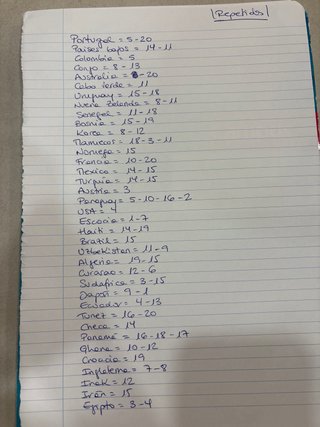 Repetidos
Portugal = 5-20
Paises bajos = 14-11
Colombia = 5
Congo = 8-13
Australia = 8-20
Cabo Verde = 11
Uruguay = 15-18
Nueva Zelanda = 8-11
Senegal = 11-18
Bosnia = 15-19
Korea = 8-12
Marruecos = 18-3-11
Noruega = 15
Francia = 10-20
Mexico = 14-15
Turquia = 14-15
Austria = 3
Paraguay = 5-10-16-2
USA = 4
Escocia = 1-7
Haiti = 14-19
Brazil = 15
Uzbekistan = 11-9
Algeria = 19-15
Curacao = 12-6
Sudafrica = 3-15
Japon = 9-1
Ecuador = 4-13
Tunez = 16-20
Checa = 14
Panamá = 16-18-17
Ghana = 10-12
Croacia = 19
Inglaterra = 7-8
Irak = 12
Irán = 15
Egipto = 3-4